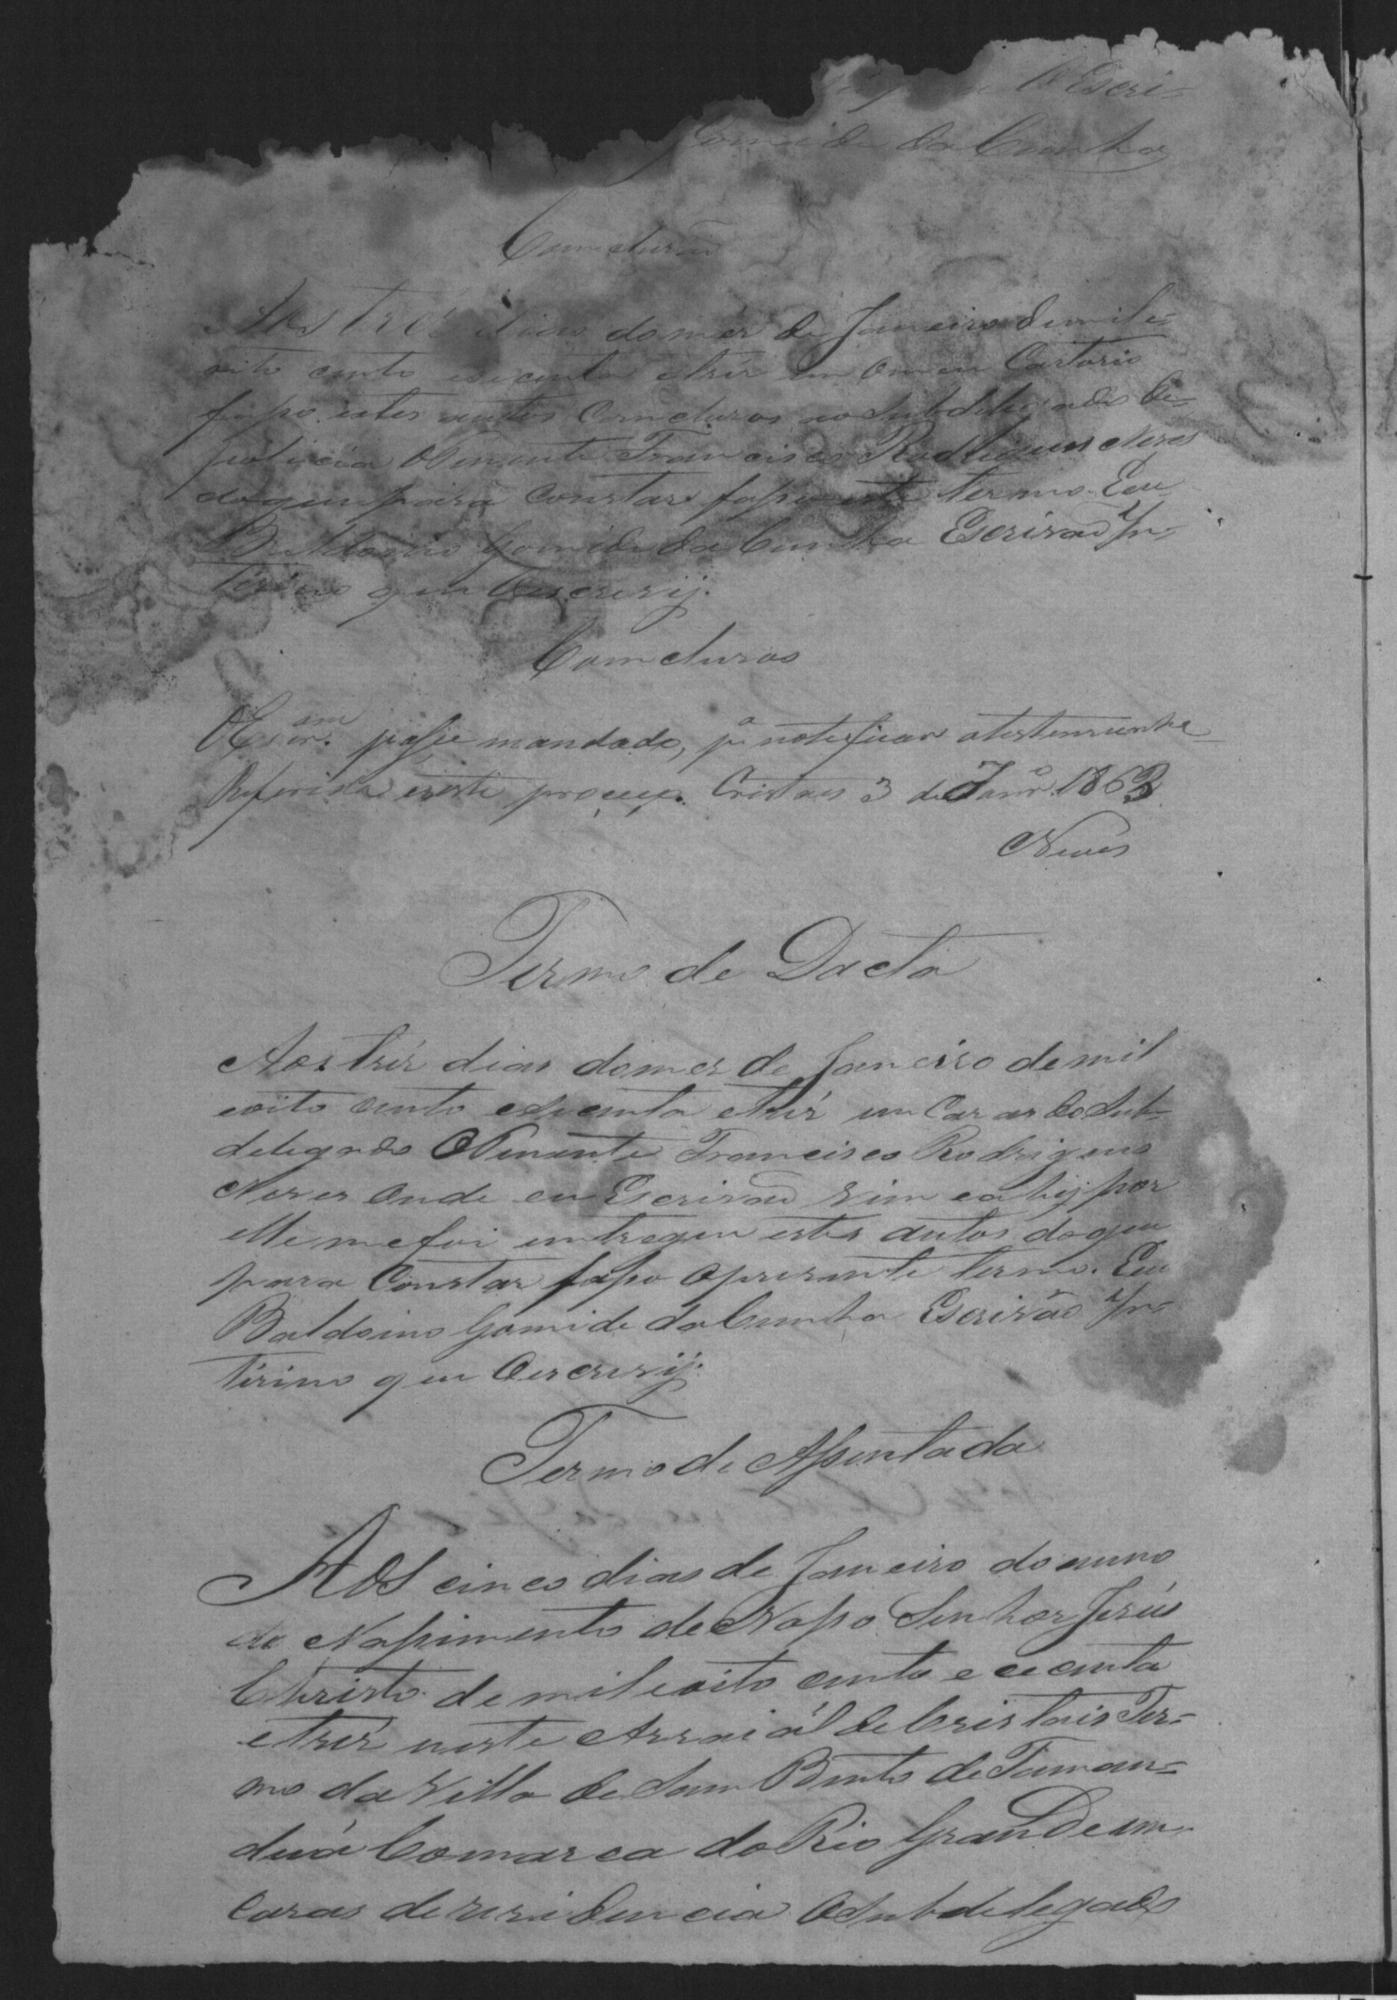 O Escri=
Gomide da Cunha
Comclusão
Aos tres dias do mes de Janeiro de mil e
oito cento e secenta e tres em o meu Cartorio
faço estes autos Comcluzos ao Subdelegado de
policia o Tenente Francisco Rodrigues Neves
do que para Constar faço este termo. Eu
Baldoino Gomide da Cunha Escrivão In=
terino que o escrevij.
Comcluzos
O Escr.am passe mandado, p.a notificar atestemunha
Referida neste proceço. Cristaes 3 de Janr.o 1863
Neves
Termo de Dacta
Aos tres dias do mes de Janeiro de mil
eoito cento esecenta etres em Casas do Sub=
delegado o Tenente Francisco Rodrigues
Neves onde eu Escrivão vim eahij por
elle me foi entregue estes autos do que
para Constar faço o presente termo. Eu
Baldoino Gomide da Cunha Escrivão In=
terino que o escrevij.
Termo de Assentada
Aos cinco dias de Janeiro do anno
do Nascimento de Nosso Senhor Jesus
Christo de mil eoito cento e cecenta
etres neste Arraial de Cristais Ter=
mo da Villa de Sam Bento de Taman=
duá Comarca do Rio Grande em
Casas de residencia do Subdelegado